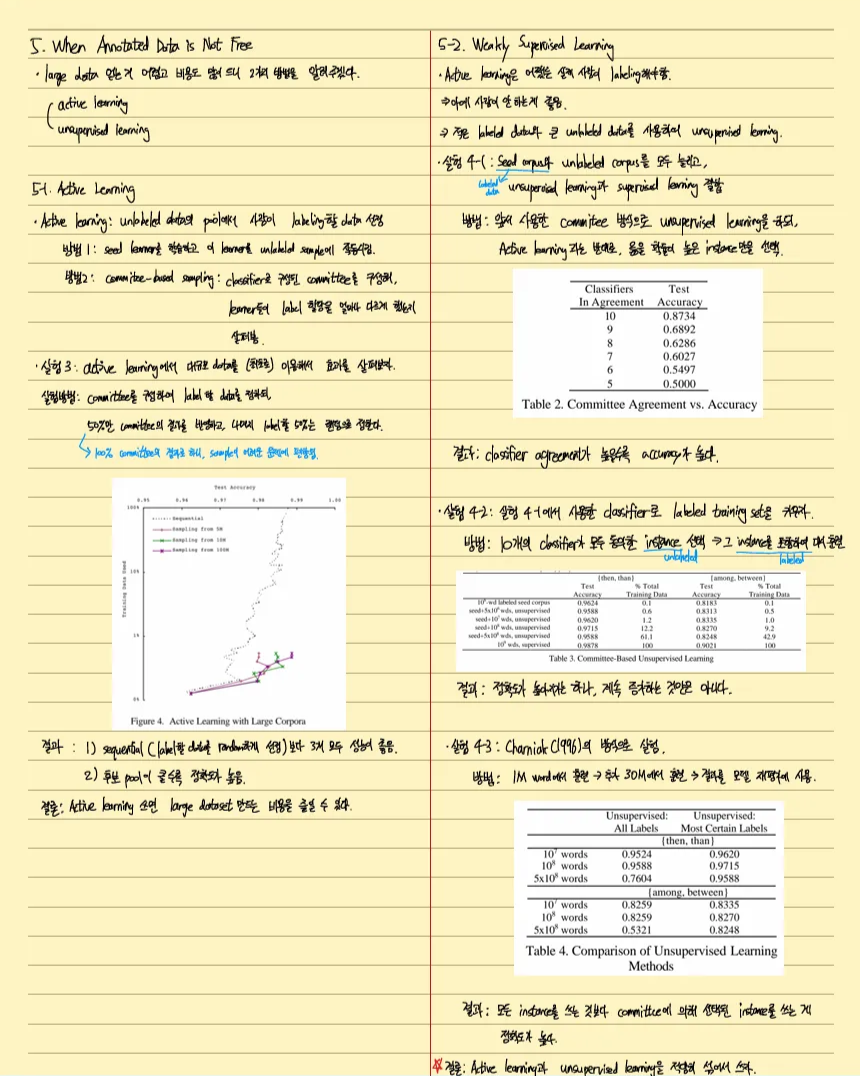 5. When Annotated Data is Not Free
· large data 얻는거 어렵고 비용도 많이 드니 2개의 방법을 알려주겠다.
active learning
unsupervised learning
5-1. Active Learning
· Active learning: unlabeled data의 pool에서 사람이 labeling할 data 선정
방법 1: seed learner를 학습하고 이 learner를 unlabeled sample에 적용시킴.
방법2: committee-based sampling: classifier로 구성된 committee를 구성해,
learner들이 label 할당을 얼마나 다르게 했는지
살펴봄.
· 실험 3: active learning에서 대규모 data를 (최초로) 이용해서 효과를 살펴보자.
실험방법: committee를 구성하여 label 할 data를 정하되,
50%만 committee의 결과를 반영하고, 나머지 label할 50%는 랜덤으로 정한다.
→ 100% committee의 결과로 하니, sample이 어려운 문제에 편향됨.
Test Accuracy
0.95 0.96 0.97 0.98 0.99 1.00
Training Data Used
100%
10%
1%
0%
Sequential
Sampling from 5M
Sampling from 10M
Sampling from 100M
Figure 4. Active Learning with Large Corpora
결과 : 1) sequential (label할 data를 random하게 선정)보다 3개 모두 성능이 좋음.
2) 후보 pool이 클수록 정확도가 높음.
결론: Active learning 쓰면 large dataset 만드는 비용을 줄일 수 있다.
5-2. Weakly Supervised Learning
· Active learning은 어쨌든 실제 사람이 labeling해야함.
⇒ 아예 사람이 안 하는게 좋음.
→ 적은 labeled data와 큰 unlabeled data를 사용하여 unsupervised learning.
· 실험 4-1: Seed corpus와 unlabeled corpus를 모두 늘리고,
labeled data
unsupervised learning과 supervised learning 결합
방법: 앞서 사용한 committee 방식으로 unsupervised learning을 하되,
Active learning과는 반대로, 옳을 확률이 높은 instance만을 선택.
Classifiers In Agreement Test Accuracy
10 0.8734
9 0.6892
8 0.6286
7 0.6027
6 0.5497
5 0.5000
Table 2. Committee Agreement vs. Accuracy
결과: classifier agreement가 높을수록 accuracy가 높다.
· 실험 4-2: 실험 4-1에서 사용한 classifier로 labeled training set을 키우자.
방법: 10개의 classifier가 모두 동의한 instance 선택 ⇒ 그 instance를 포함하여 다시 훈련
unlabeled labeled
{then, than} {among, between}
Test Accuracy % Total Training Data Test Accuracy % Total Training Data
10⁶-wd labeled seed corpus 0.9624 0.1 0.8183 0.1
seed+5x10⁶ wds, unsupervised 0.9588 0.6 0.8313 0.5
seed+10⁷ wds, unsupervised 0.9620 1.2 0.8335 1.0
seed+10⁸ wds, unsupervised 0.9715 12.2 0.8270 9.2
seed+5x10⁸ wds, unsupervised 0.9588 61.1 0.8248 42.9
10⁹ wds, supervised 0.9878 100 0.9021 100
Table 3. Committee-Based Unsupervised Learning
결과 : 정확도가 높아지긴 하나, 계속 증가하는 것만은 아니다.
· 실험 4-3: Charniak(1996)의 방식으로 실험.
방법: 1M word에서 훈련 → 추가 30M에서 훈련 → 결과를 모델 재평가에 사용.
Unsupervised: All Labels Unsupervised: Most Certain Labels
{then, than}
10⁷ words 0.9524 0.9620
10⁸ words 0.9588 0.9715
5x10⁸ words 0.7604 0.9588
{among, between}
10⁷ words 0.8259 0.8335
10⁸ words 0.8259 0.8270
5x10⁸ words 0.5321 0.8248
Table 4. Comparison of Unsupervised Learning
Methods
결과: 모든 instance를 쓰는 것보다 committee에 의해 선택된 instance를 쓰는 게
정확도가 높다.
☆ 결론: Active learning과 unsupervised learning을 적당히 섞어서 쓰자.